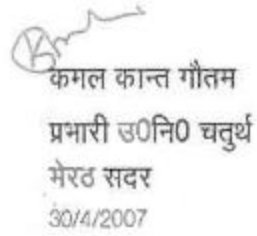 कमल कान्त गौतम
प्रभारी उ0नि0 चतुर्थ
मेरठ सदर
30/4/2007